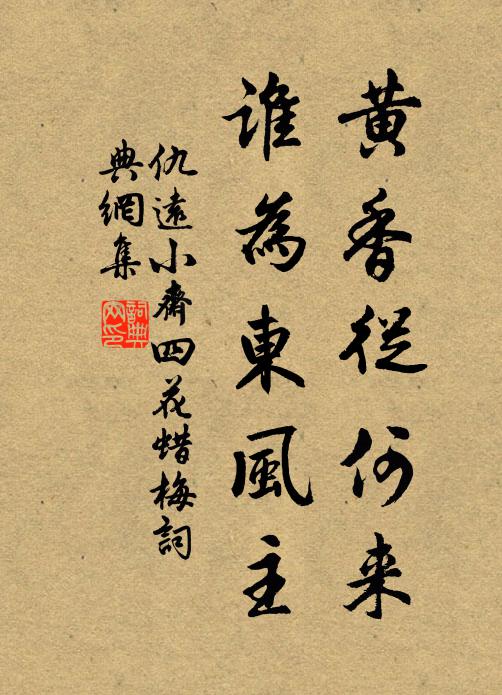 黄香從何来
誰為東風主
仇遠小齋四花蜡梅詞
典網集
詞典
网印